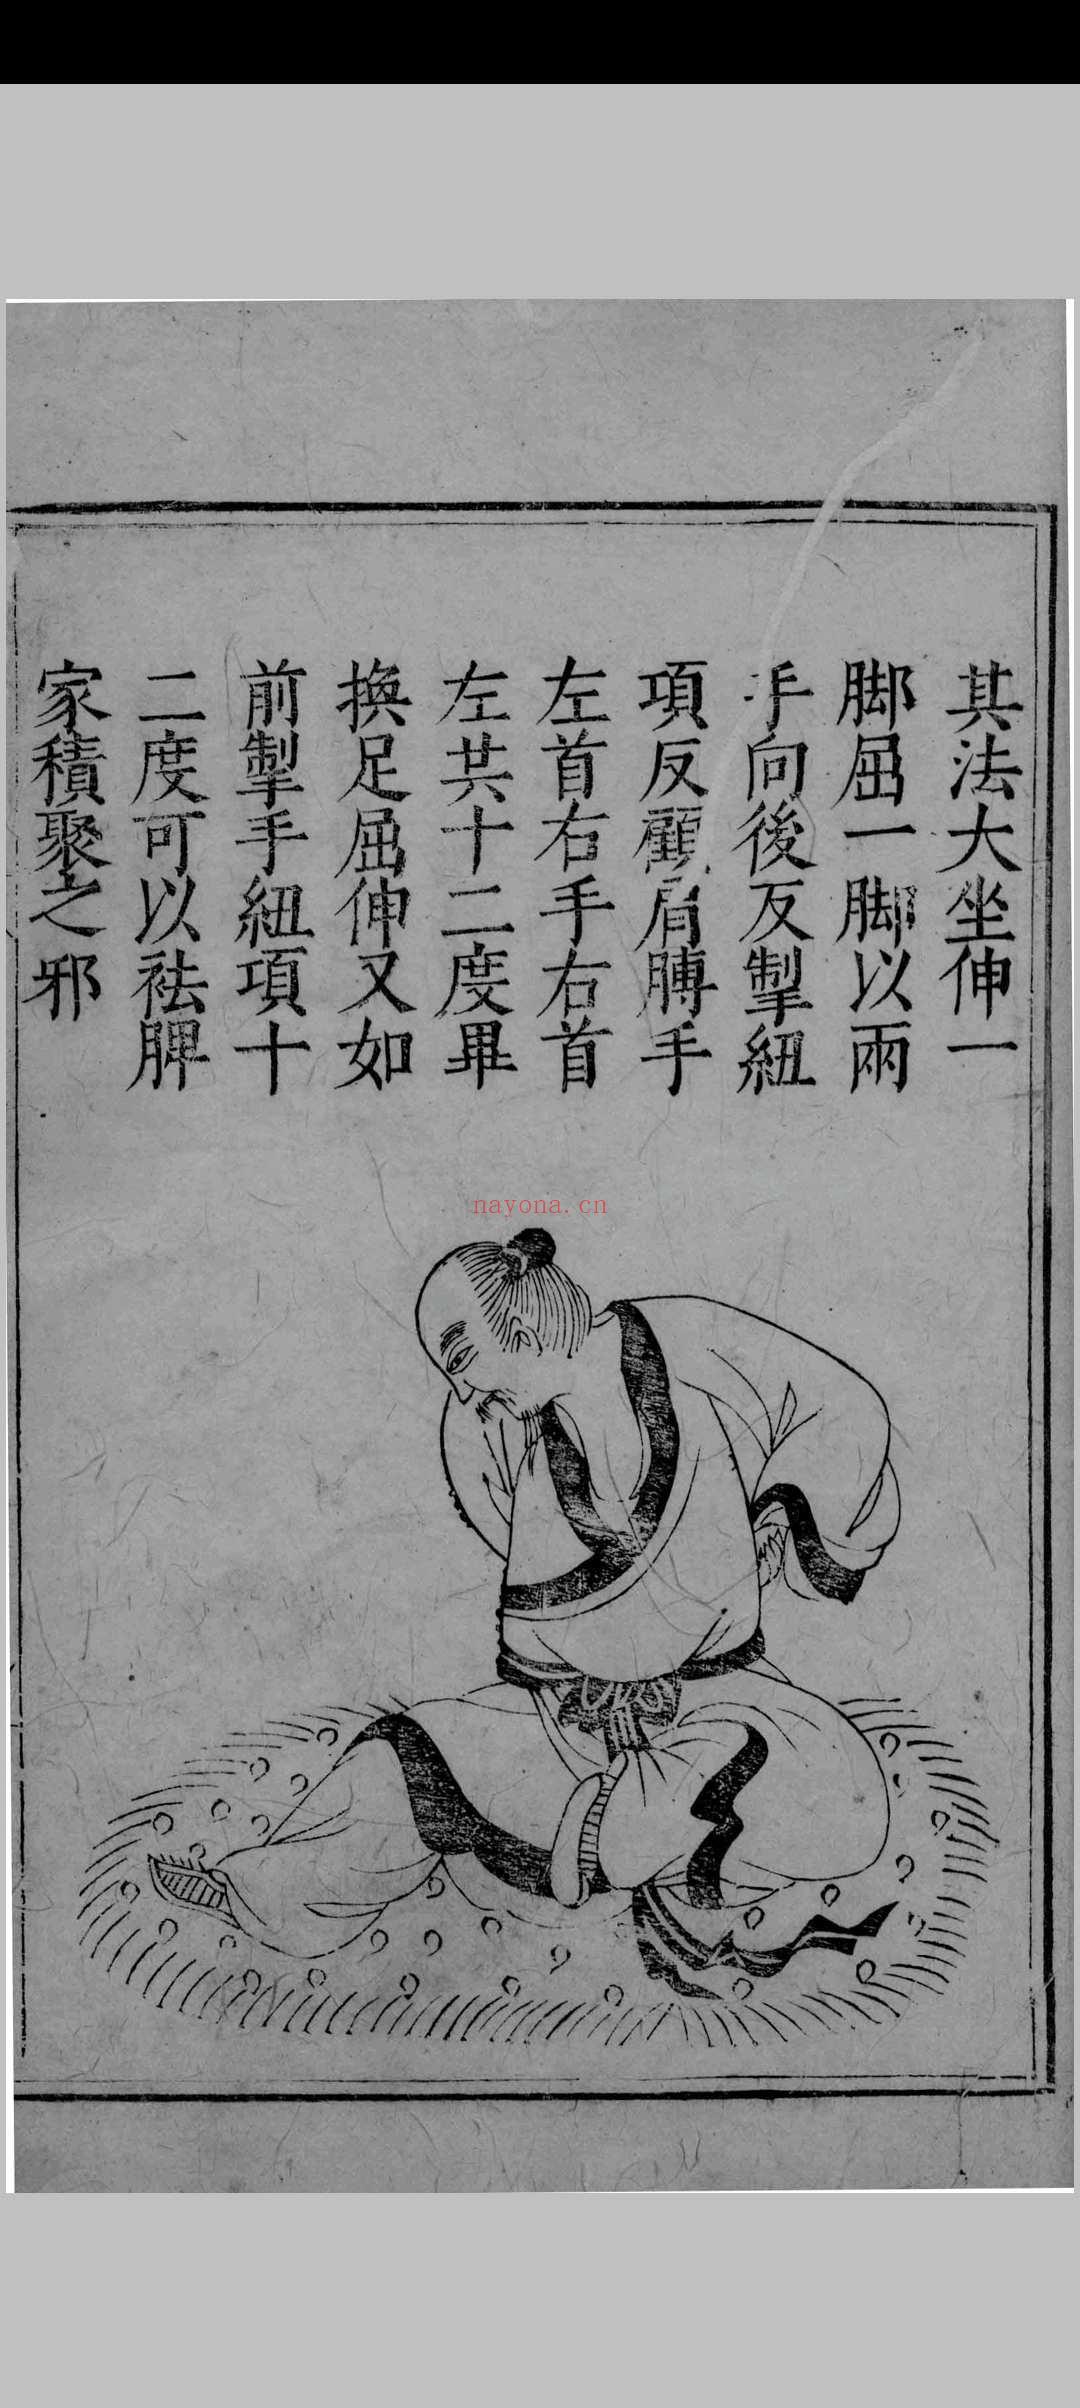 其法大坐伸一
脚屈一脚以兩
手向後反掣紐
項反顧肩膊手
左首右手右首
左共十二度畢
換足屈伸又如
前掣手紐項十
二度可以祛脾
家積聚之邪
nayona.cn